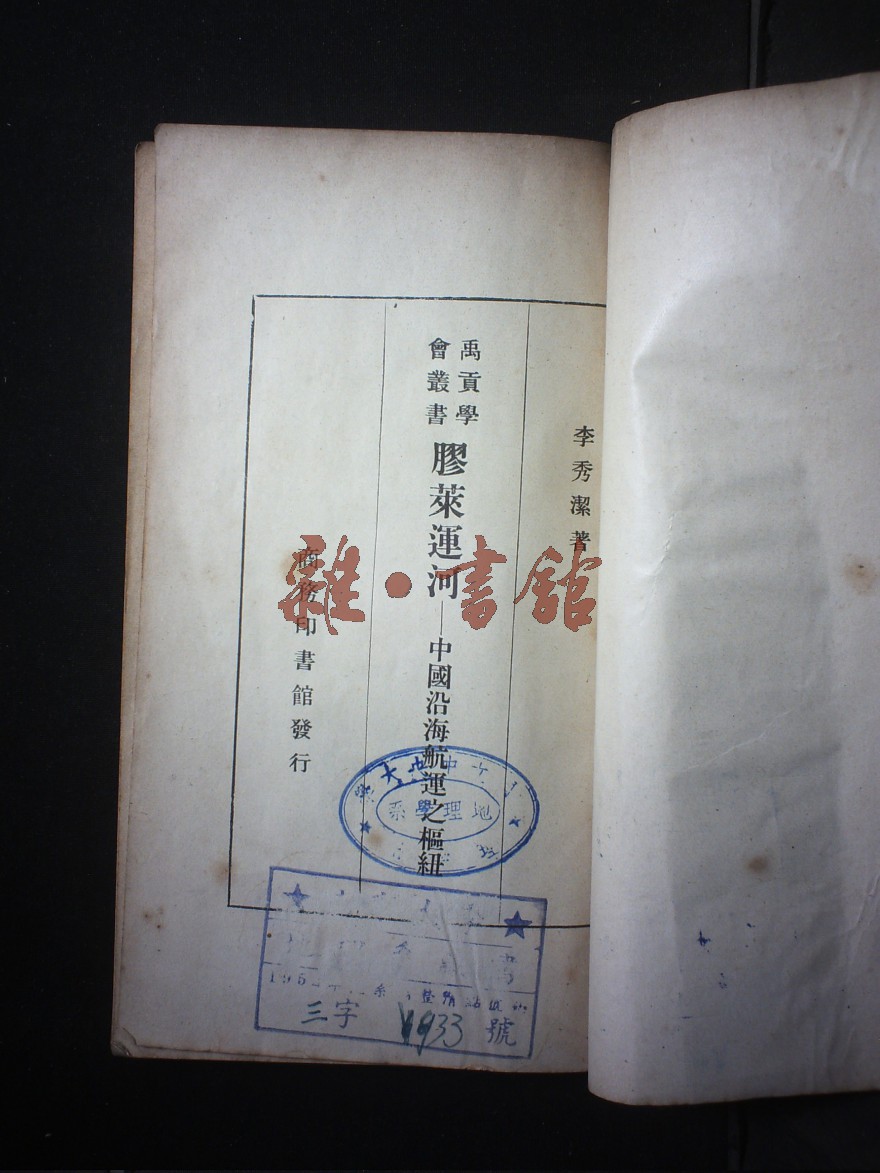 李秀潔著
禹貢學
會叢書
膠萊運河——中國沿海航運之樞紐
商務印書館發行
雜·書館
地理學系
三字 號